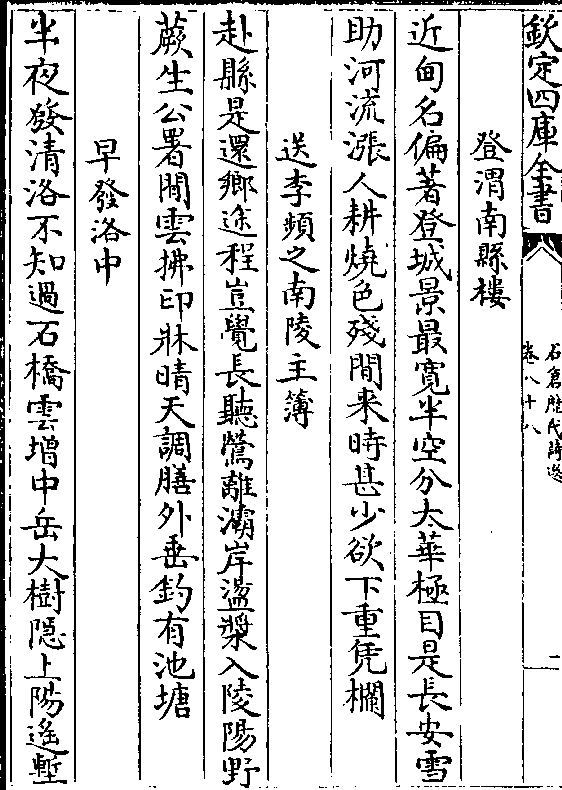 欽定四庫全書
石倉歷代詩選
卷八十八
二
登渭南縣樓
近甸名偏著登城景最寛半空分太華極目是長安雪
助河流漲人耕燒色殘閒来時甚少欲下重凭欄
送李頻之南陵主簿
赴縣是還鄉途程豈覺長聽鶯離灞岸盪槳入陵陽野
蕨生公署閒雲拂印牀晴天調膳外垂釣有池塘
早發洛中
半夜發清洛不知過石橋雲增中岳大樹隠上陽遙塹